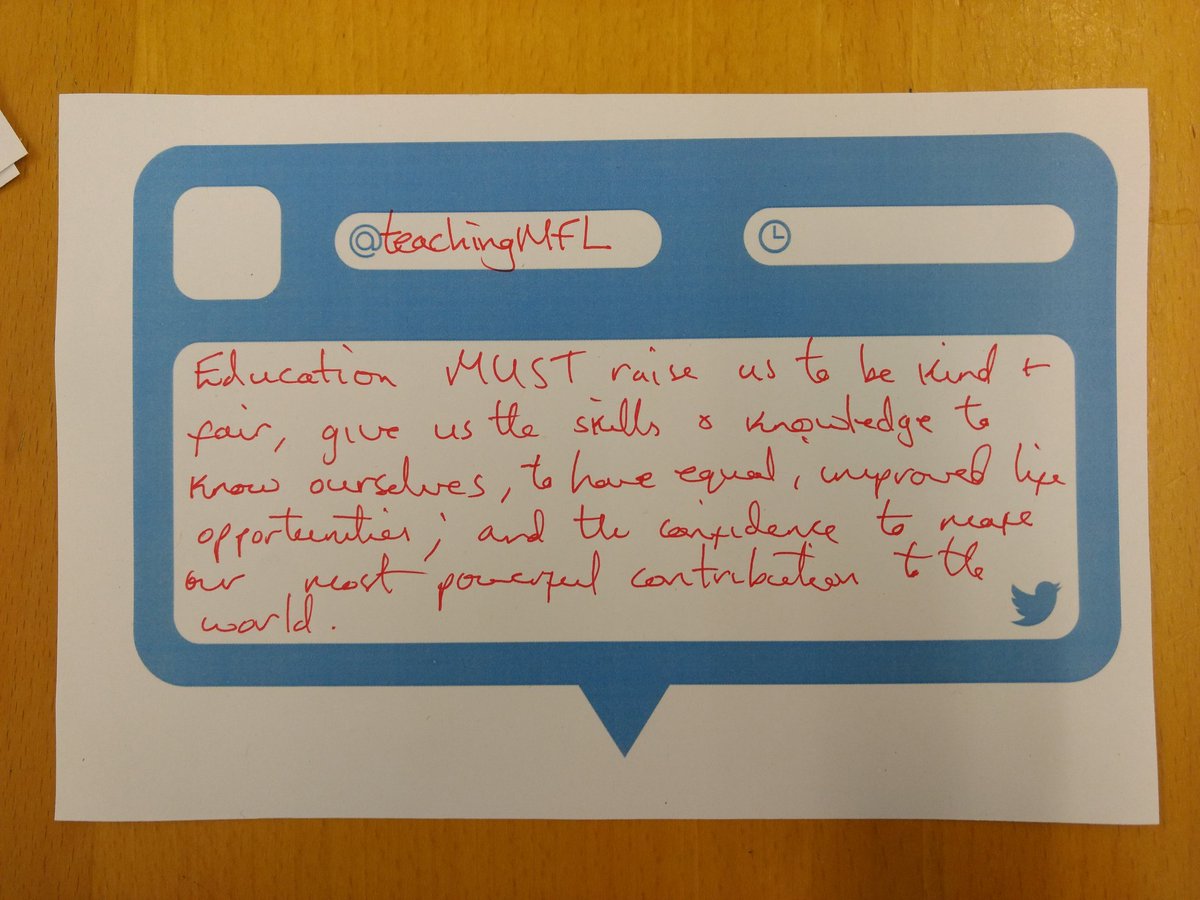 @teachingMFL
Education MUST raise us to be kind +
fair, give us the skills & knowledge to
know ourselves, to have equal, improved life
opportunities; and the confidence to make
our most powerful contribution to the
world.